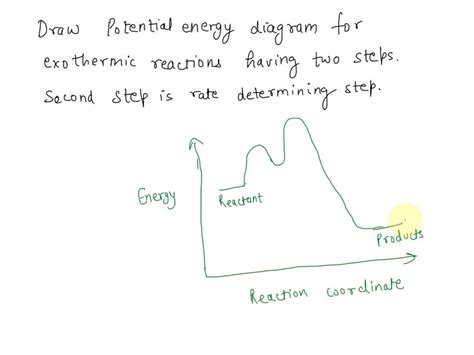 Draw Potential energy diagram for
exothermic reactions having two steps.
Second step is rate determining step.
Energy
Reactant
Products
Reaction coordinate